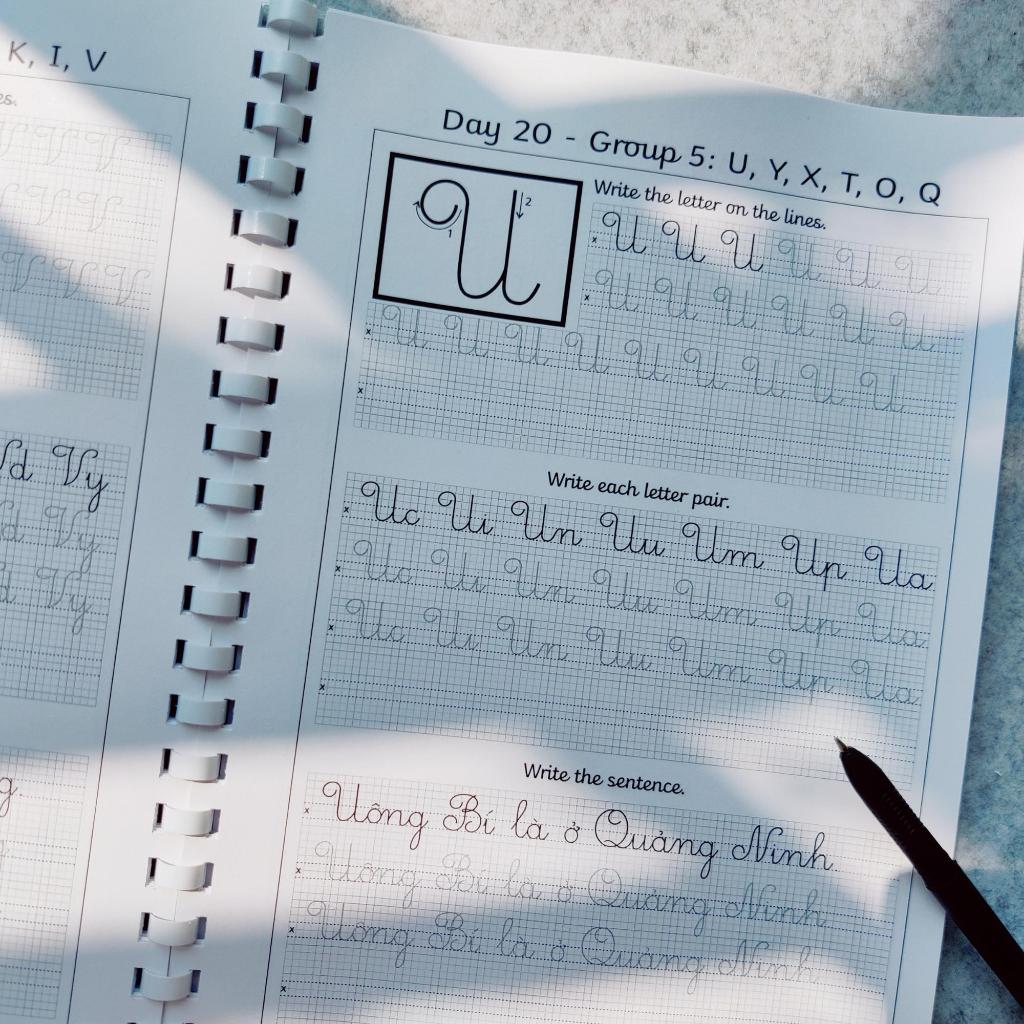 K, I, V
es.
Vd Vy
Vd Vy
d Vy
g
Day 20 - Group 5: U, Y, X, T, O, Q
1 2
Write the letter on the lines.
U
x U U U U U U
x U U U U U U
x U U U U U U U U U
x
Write each letter pair.
x Uc Ui Un Uu Um Up Ua
x Uc Ui Un Uu Um Up Ua
x Uc Ui Un Uu Um Up Ua
x
Write the sentence.
x Uông Bí là ở Quảng Ninh
x Uông Bí là ở Quảng Ninh
x Uông Bí là ở Quảng Ninh
x